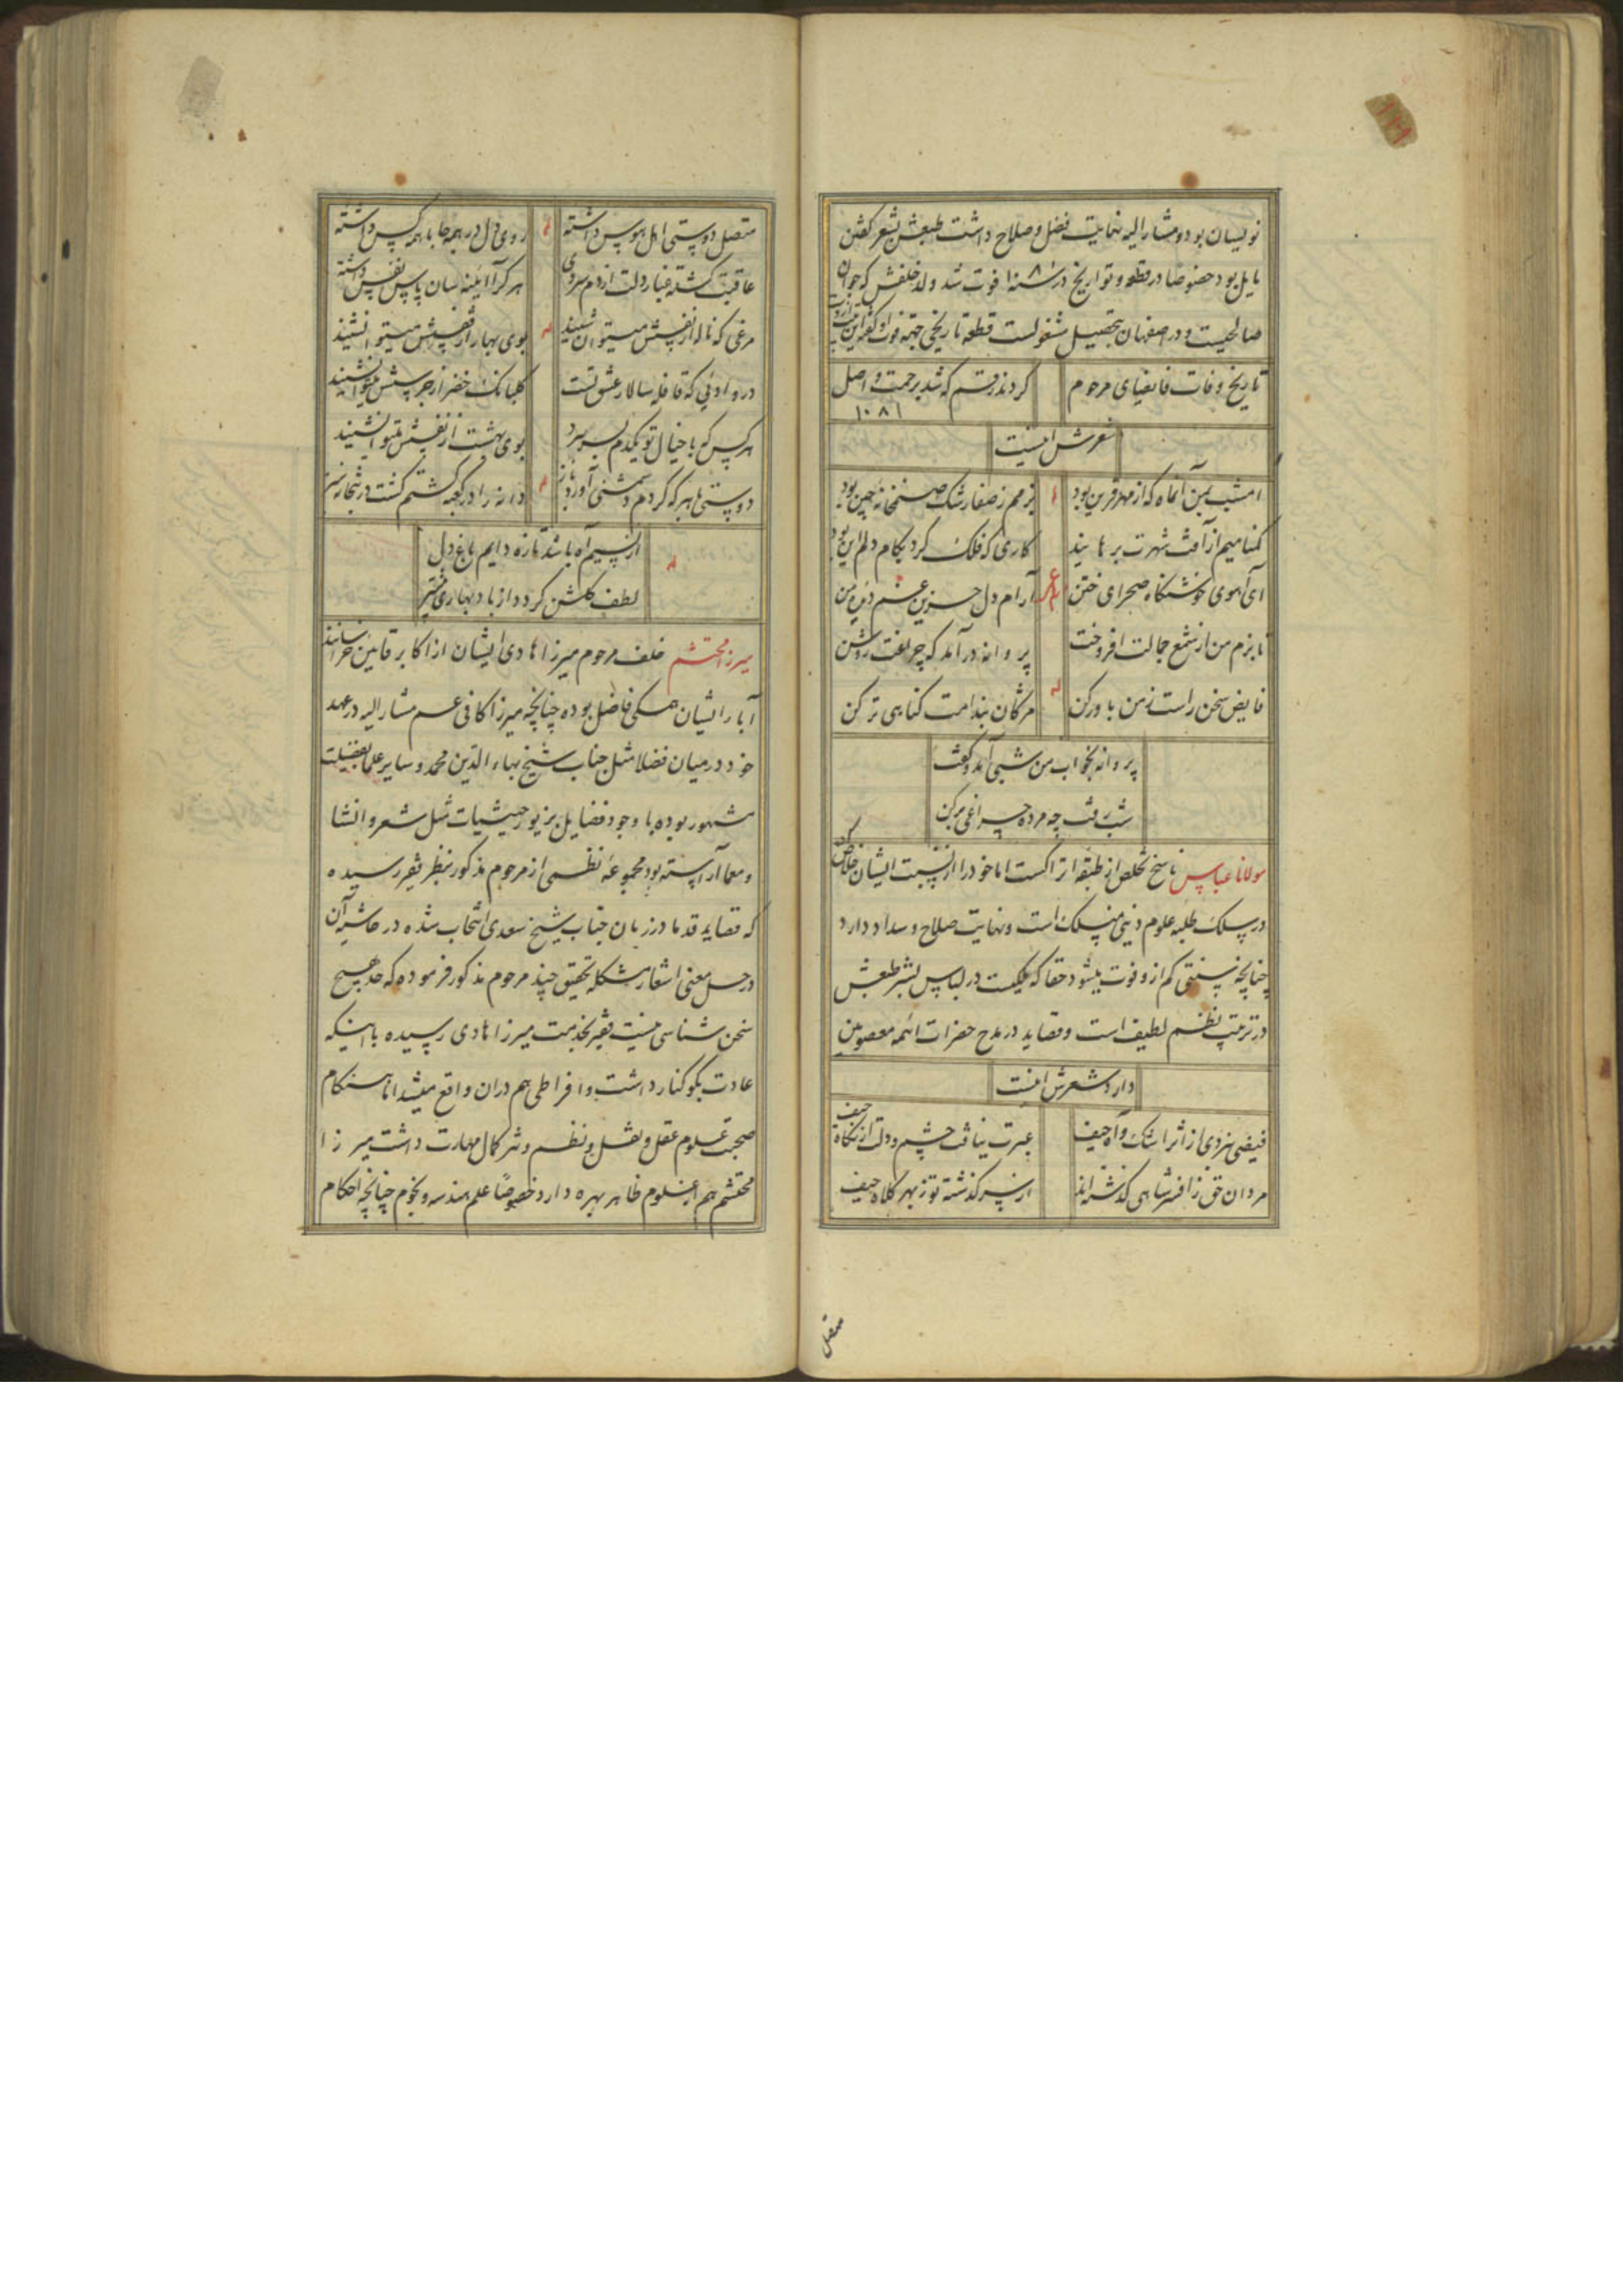 نویسان بود و مشار الیه نهایت فضل و صلاح داشت طبعش بشعر گفتن
مایل بود خصوصا در قطعه و تواریخ در سنه ۱۰۸۱ فوت شد ولد خلفش که جوان
صالحیست و در اصفهان بتحصیل مشغولست قطعه تاریخی جهة فوت او گفته این بیت از وست
تاریخ وفات فایضای مرحوم
کردند رقم که شد برحمت واصل
۱۰۸۱
شعرش اینست
امشب بمن آنماه که از مهر قرین بود
بزمم ز صفا رشک صنمخانه چین بود
گمنامیم از آفت شهرت برهانید
کاری که فلک کرد بکام دلم این بود
آی آهوی خوشنگاه صحرای ختن
آرام دل حزین غم دیده من
تا بزم من از شمع جمالت افروخت
پروانه در آمد که چراغت روشن
فایض سخن راست ز من باور کن
مژگان بندامت گناهی تر کن
پروانه بخواب من شبی آمد و گفت
شب رفت چه مرده چراغی بر کن
مولانا عباس ناسخ تخلص از طبقه اتراکست اما خود را از نسبت ایشان خلاص کرده
در سلک طلبه علوم دینی منسلک است و نهایت صلاح و سداد دارد
چنانچه سنتی کم ازو فوت میشود حقا که ملکیست در لباس بشر طبعش
در ترتیب نظم لطیف است و قصاید در مدح حضرات ائمه معصومین
دارد شعرش اینست
فیضی نبردی از اثر اشک و آه حیف
عبرت نیافت چشم و دلت از نگاه حیف
مردان حق ز افسر شاهی گذشته‌اند
از سر گذشته تو ز بهر کلاه حیف
متصل
متصل دوستی اهل هوس داشته
روی دل در همه جا با همه کس داشته
عاقبت گشته غبار دلت از دم سردی
هر که را آینه سان پاس نفس داشته
مرغی که ناله از قفسش میتوان شنید
بوی بهار از نفسش میتوان شنید
در وادئی که قافله سالار عشق تست
گلبانک خضر از جرسش میتوان شنید
هر کس که با خیال تو یکدم بسر برد
بوی بهشت از نفسش میتوان شنید
دوستی با هر که کردم دشمنی آورد بار
دانه را در کعبه کشتم گشت در بتخانه سبز
از نسیم آه باشد تازه دایم باغ دل
لطف گلشن گردد از باد بهاری بیشتر
میرزا محتشم خلف مرحوم میرزا هادی ایشان از اکابر قاین خراسانند
آباء ایشان همگی فاضل بوده چنانچه میرزا کافی عم مشار الیه در عهد
خود در میان فضلا مثل جناب شیخ بهاء الدین محمد و سایر علما بفضیلت
مشهور بوده با وجود فضایل بزیور حیثیات مثل شعر و انشا
و معما آراسته بود مجموعه نظمی از مرحوم مذکور بنظر فقیر رسیده
که قصاید قدما در زبان جناب شیخ سعدی انتخاب شده در حاشیه آن
در حل معنی اشعار مشکله تحقیق چند مرحوم مذکور فرموده که حد هیچ
سخن شناسی نیست فقیر بخدمت میرزا هادی رسیده با اینکه
عادت بکوکنار داشت و افراطی هم در آن واقع میشد اما هنگام
صحبت علوم عقل و نقل و نظم و نثر کمال مهارت داشت میرزا
محتشم هم از علوم ظاهر بهره دارد خصوصًا علم هندسه و نجوم چنانچه احکام